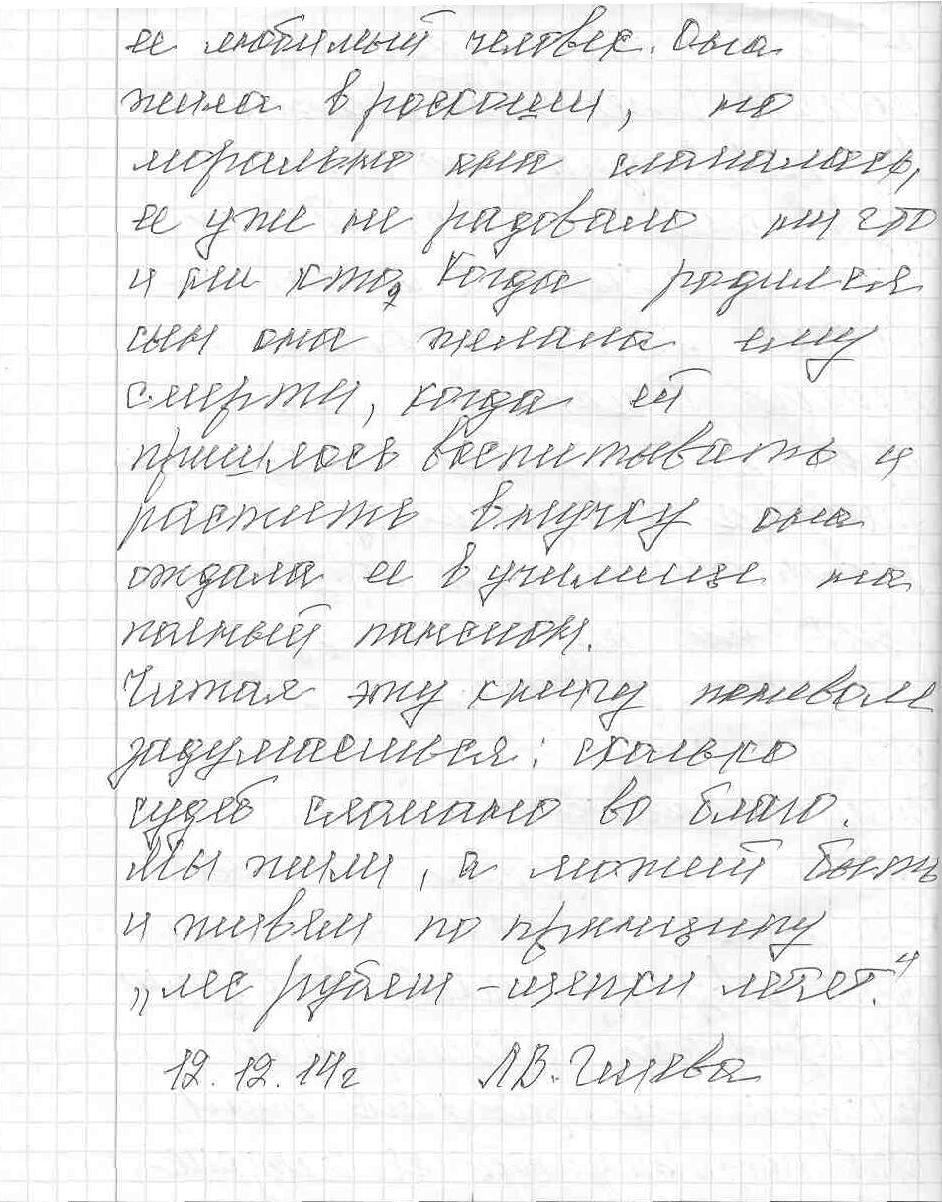 ее любимый человек. Она
жила в роскоши, но
морально она сломалась,
ее уже не радовало ни что
и ни кто. Когда родился
сын она желала ему
смерти, когда ей
пришлось воспитывать и
растить внучку она
отдала ее в училище на
полный пансион.
Читая эту книгу поневоле
задумаешься: сколько
судеб сломано во благо.
Мы жили, а может быть
и живем по принципу
„лес рубят - щепки летят."
12.12.14г Л.В.